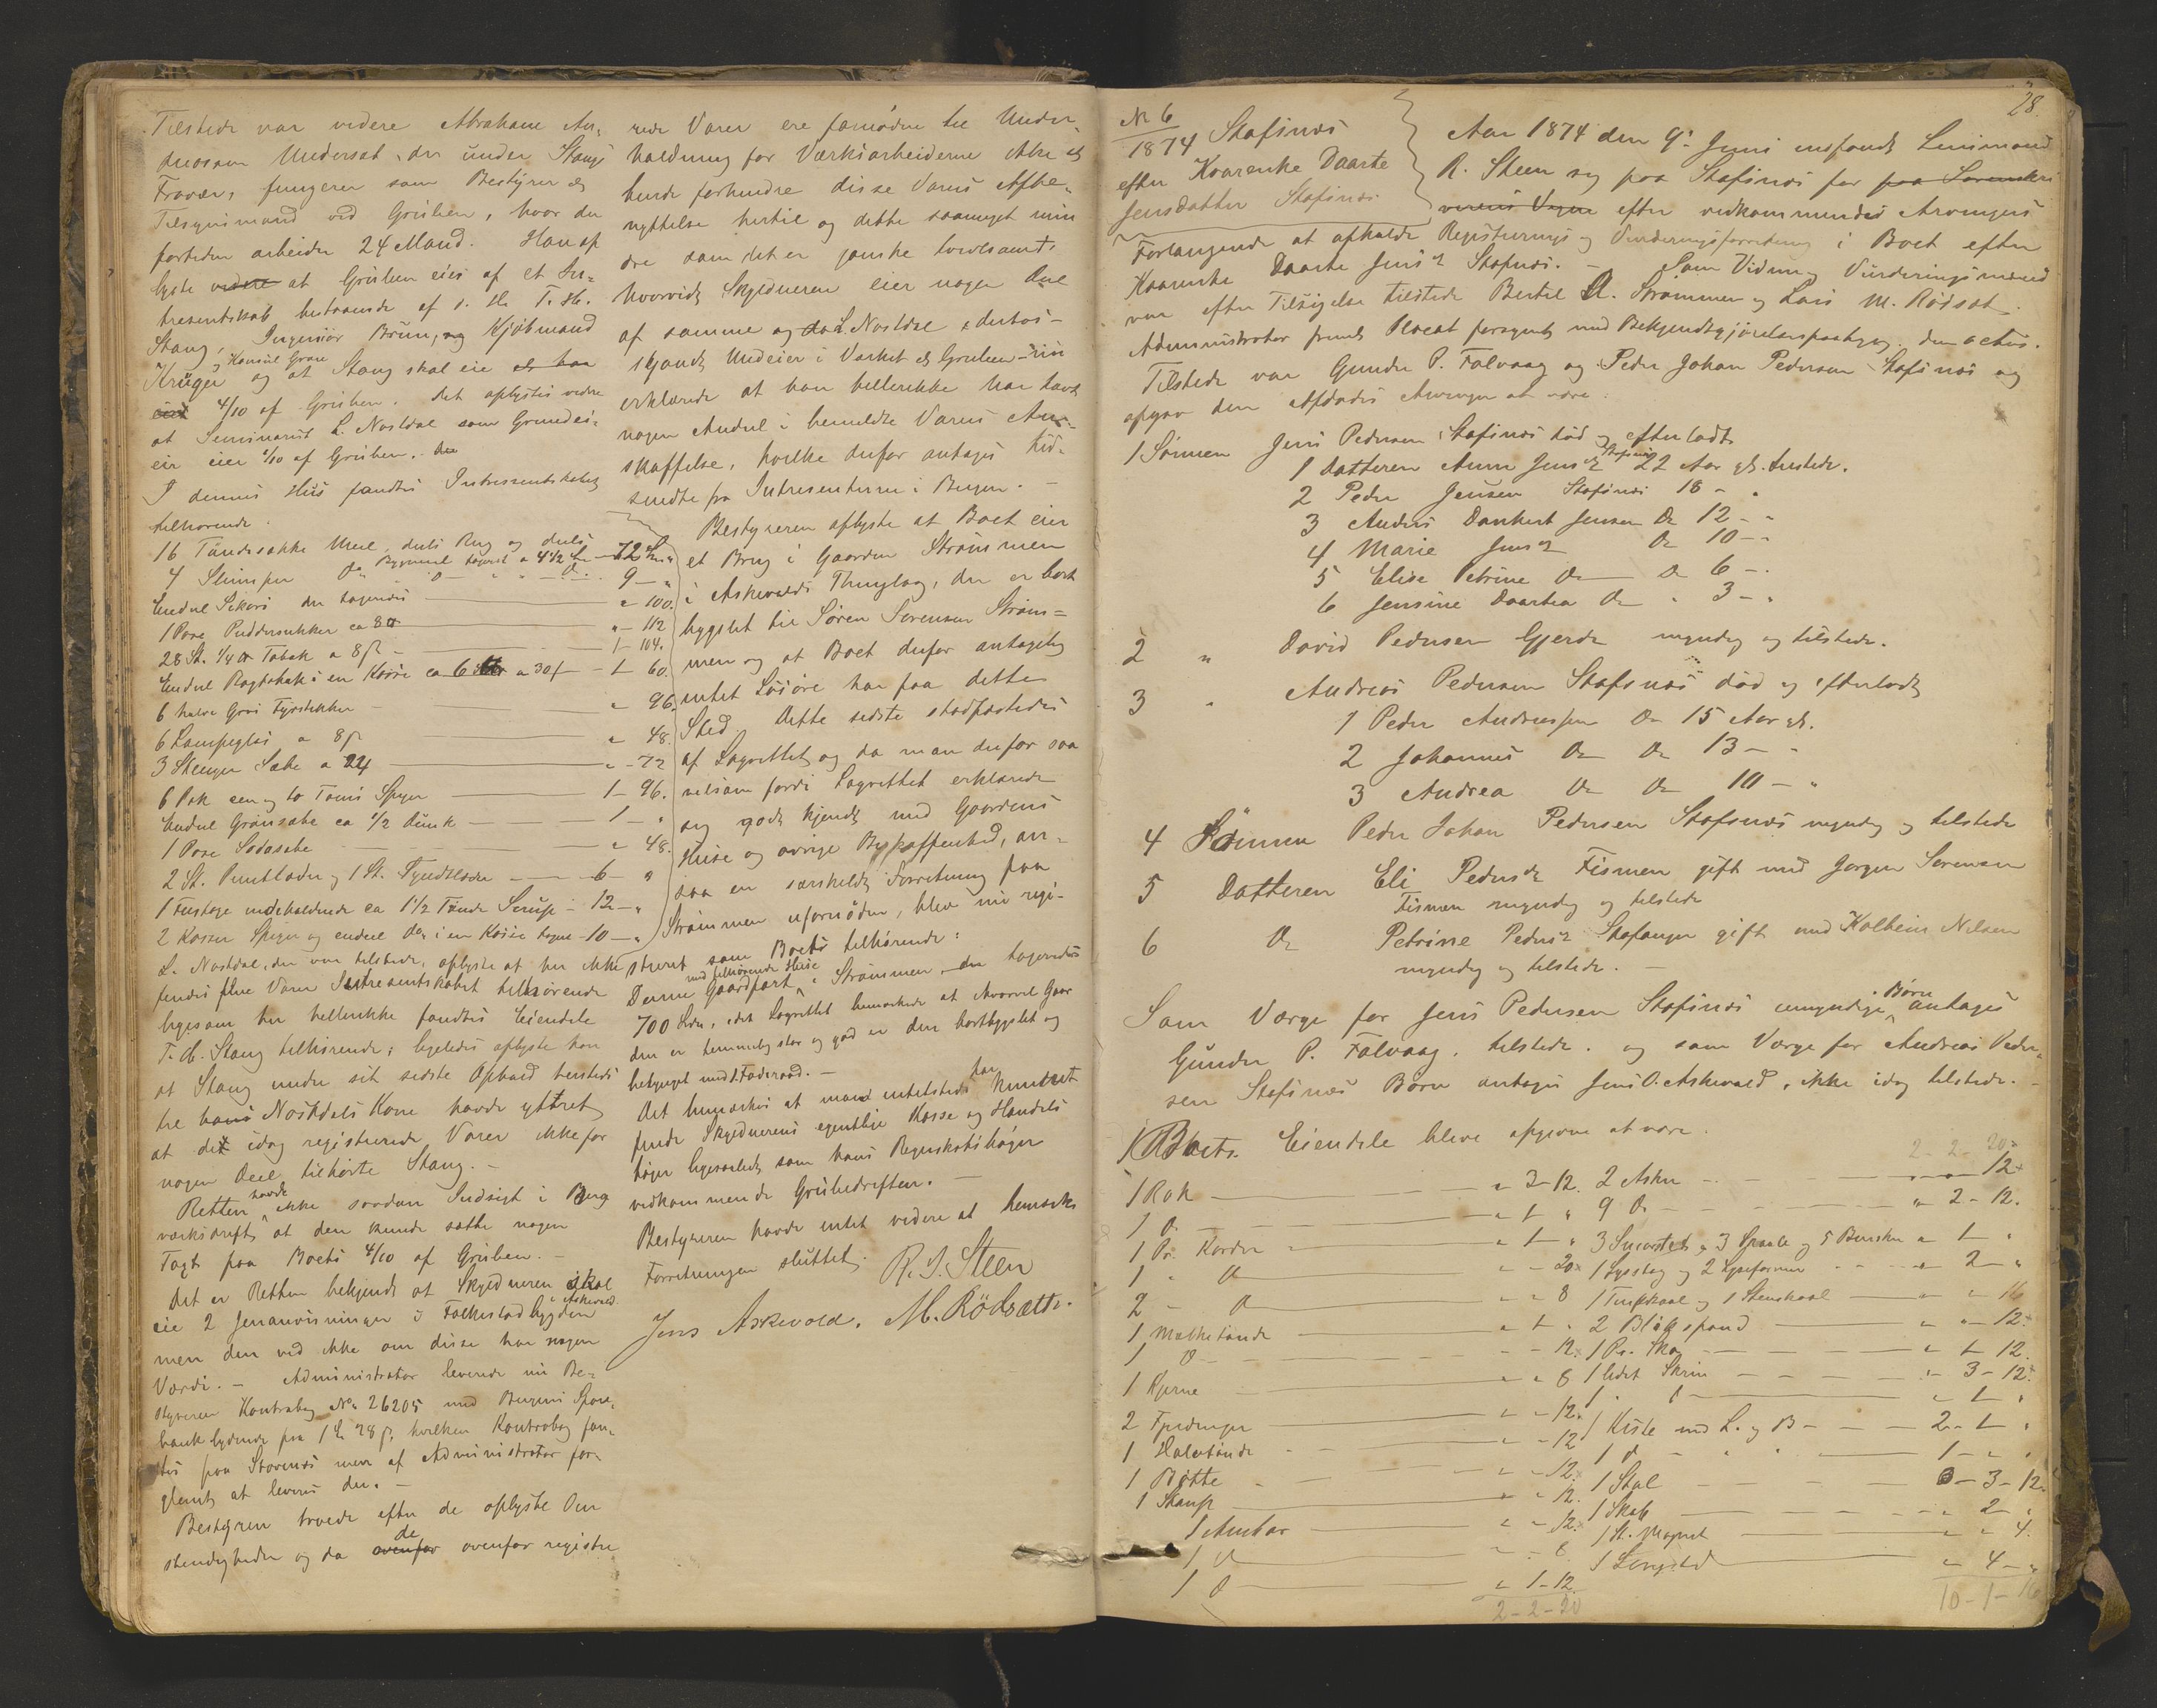 Tilstede var videre Abraham An-
dreasen Undersæt, der under Stangs
Fravær, fungerer som Bestyrer og
Tilsynsmand ved Gruben, hvor der
fortiden arbeider 24 Mand. Han op
lyste videre at Gruben eies af et In-
tresentskab bestaaende af d. Hr. T. H.
Stang, Ingeniör Brun, og Kjøbmand
Konsul Grane
Krüger og at Stang skal eie
4/10 af Gruben. Det oplystes videre
at Seminarist L. Nostdal som Grundei-
er eier 1/10 af Gruben.
I dennes Hus fandtes Intressentskabet
tilhørende.
16 Tøndesække Meel, deels Rug og deels
Bygmeel taxeret a 4 1/2 - 72
4 do 9 - "
Endeel Sikori der taxeredes " 100.
1 Pose Puddersukker ca 8 " - 112
28 St. 1/4 Tobak a 8 1 - 104.
Endeel Bagtobak i en Kasse ca 6 a 30 1 60.
6 halve Gros Fyrstikker " 96.
6 Lampeglas a 8 " 48.
3 Stenger Sæbe a 24 " - 72
6 Pak een og to Toms Spiger 1 - 96.
Endeel Grønsæbe ca 1/2 Dunk 1 - "
1 Pose Sodasæbe " 48.
2 St. og 1 St. 6 "
1 Fustage indeholdende ca 1 1/2 Tønde Sirup - 12 - "
2 Kasser Spiger og endeel do i en Kasse taxeret 10 - "
L. Nostdal, der var tilstede, oplyste at her ikke
fandtes flere Varer Intresentskabet tilhørende
ligesom her hellerikke fandtes Eiendele
T. H. Stang tilhørende; ligeledes oplyste han
at Stang under sit sidste Ophold hersteds
til hans Nostdals Kone havde yttret
at det idag registrerede Varer ikke for
nogen Deel tilhørte Stang. -
havde
Retten ikke saadan Indsigt i Berg
værksdrift at den kunde sætte nogen
Taxt paa Boets 4/10 af Gruben. -
Det er Retten bekjendt at Skyldneren skal
i Askevold
eie 2 Jernanvisninger i Folkestadbygden
men den ved ikke om disse har nogen
Værdi. - Administrator leverede nu Be-
styreren Kontrabog No 26205 med Bergens Spare-
bank lydende paa 1 28, hvilken Kontrabog fan-
tes paa Stavenes men af Administrator for-
glemt at leveres der. -
Bestyreren troede efter de oplyste Om
de
stendigheder og da ovenfor ovenfor registre
rede Varer ere fornødne til Under-
holdning for Værksarbeiderne ikke at
burde forhindre disse Varers Afbe-
nyttelse hertil og dette saameget min
dre som det er ganske tvivlsomt
hvorvidt Skyldneren eier nogen Deel
af samme og da L. Nostdal
skjøndt Medeier i Værket el. Gruben nu
erklærede at han hellerikke har havt
nogen Andeel i bemeldte Varers An-
skaffelse, hvilke derfor antages hid-
sendte fra Intresenterne i Bergen. -
Bestyreren oplyste at Boet eier
et Brug i Gaarden Strømmen
i Askevolds Thinglag, der er bort
bygslet til Søren Sørensen Strøm-
men og at Boet derfor antagelig
intet Løsøre har paa dette
Sted. Dette sidste stadfæstedes
af Lagrettet og da man derfor saa
velsom fordi Lagrettet erklærede
sig godt kjendt med Gaardens
Huse og øvrige Beskaffenhed, an-
saa en særskildt Forretning paa
Strømmen ufornøden, blev nu regi-
streret som Boets tilhørende:
med tilhørende Huse
Denne Gaardpart i Strømmen, der taxeredes
700 Spd., idet Lagrettet bemærkede at hvorvel Gaar
den er temmelig stor og god er den bortbygslet og
beheftet med Føderaad. -
har
Det bemærkes at man intetsteds kunnet
finde Skyldnerens egentlige Kasse og Handels
bøger ligesaalidt som hans Regnskabsbøger
vedkommende Grubedriften. -
Bestyreren havde intet videre at bemærke
Forretningen sluttet.
R. S. Steen
Jens Askevold. M. Rödsætr.
28.
No 6
1874 Stafsnæs
efter Kvarenke Daarte
Jensdatter Stafsnæs
Aar 1874 den 9. Juni indfandt Lensmand
R. Steen sig paa Stafsnæs for paa Sorenskri
verens Vegne efter vedkommendes Arvingers
Forlangende at afholde Registrerings og Vurderingsforretning i Boet efter
Kvarenke Daarte Jensd. Stafsnæs. - Som Vidner og Vurderingsmænd
var efter Tilsigelse tilstede Bertel A. Strømmen og Lars M. Rödsæt.
Administrator fremlagde Placat forsynet med Bekjendtgjørelsespaategning den actus.
Tilstede var Gunder P. Falvaag og Peder Johan Pedersen Stafsnæs og
opgav den Afdødes Arvinger at være.
1 Sønnen Jens Pedersen Stafsnæs død og efterladt
1 Datteren Anne Jensd. Stafsnæs 22 Aar gl. tilstede.
2 Peder Jensen Stafsnæs 18 - "
3 Anders Dankert Jensen Do 12 - "
4 Marie Jensd. Do 10 - "
5 Elise Petrine Do Do 6 - "
6 Jensine Daartea Do " 3 - "
2 " David Pedersen Gjerde myndig og tilstede.
3 " Andreas Pedersen Stafsnæs død og efterladt
1 Peder Andreassen Do 15 Aar gl.
2 Johannes Do Do 13 - "
3 Andrea Do Do 10 - "
4 Sønnen Peder Johan Pedersen Stafsnæs myndig og tilstede
5 Datteren Eli Pedersd. Fismen gift med Jørgen Sørensen
Fismen myndig og tilstede
6 Do Petrine Pedersd. Stafanger gift med Kolbein Nilsen
myndig og tilstede. -
Som Værge for Jens Pedersen Stafsnæs umyndige Børn antages
Gunder P. Falvaag, tilstede. og som Værge for Andreas Peder-
sen Stafsnæs Børn antages Jens O. Askevold, ikke idag tilstede. -
Boets Eiendele bleve opgivne at være.
2 - 2 - 20
1 Rok " 3 - 12. 2 Asker " - 12
1 Do " 1 " 9 Do " 2 - 12.
1 Pr. Karder " 1 " 3 " 3 og 5 " 1 "
1 " Do " - 20 1 og 2 " 2 - "
2 - Do " " 8 1 og 1 Stenskaal " " 16
1 Melketønde " 1 " 2 Blikspand " " 12
1 Do - - 12 1 Pr. " 1 12.
1 Kjerne " " 8 1 lidet Skrin " 3 - 12
2 Fjerdinger " - 12 1 " 1 "
1 Halvtønde " - 12 1 Kiste med L. og B - 2 - 1 "
1 Bøtte " - 12 1 Do 1 - " "
1 Stamp " - 12. 1 Stol 0 - 3 - 12
1 Ambar " - 12. 1 Skab " 2 - "
1 Do " " 8 1 St. " " 4.
1 Do " 1 - 12. 1 " 4 - "
2 - 2 - 20 10 - 1 - 16